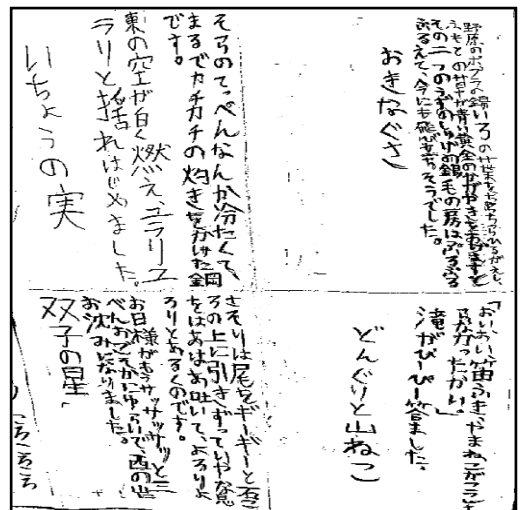 野原のポプラの錫いろの葉をちらちらひるがえし、
ふもとの草が青い黄金のかがやきをあげますと
その二つのうずのしゅげの銀毛の房はぷるぷる
ふるえて、今にも飛び立ちそうでした。
おきなぐさ
そらのてっぺんなんか冷たくて、
まるでカチカチの灼きをかけた鋼
です。
東の空が白く燃え、ユラリユ
ラリと揺れはじめました。
いちょうの実
「おいおい、笛ふき、やまねこが
らなかったかい。」
滝がぴーぴー答ました。
どんぐりと山ねこ
さそりは尾をギーギーと石こ
ろの上に引きずっていやな息
をはあはあ吐いて、よろりよ
ろりとあるくのです。
お日様がもうサッサッサッと三
べんおごそかにゆらいで、西の
お沈みになりました。
双子の星